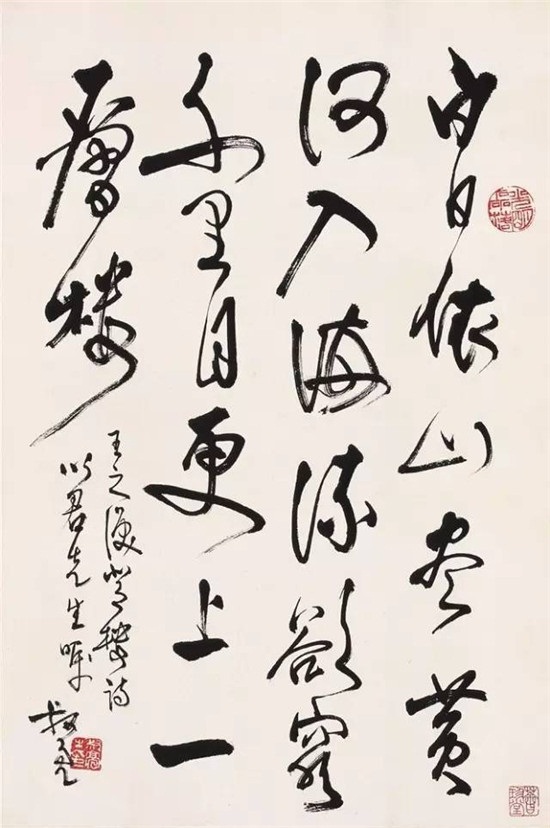 白日依山尽黄
河入海流欲窮
千里目更上一
層楼
王之涣登楼诗
以君先生嘱
叔亮